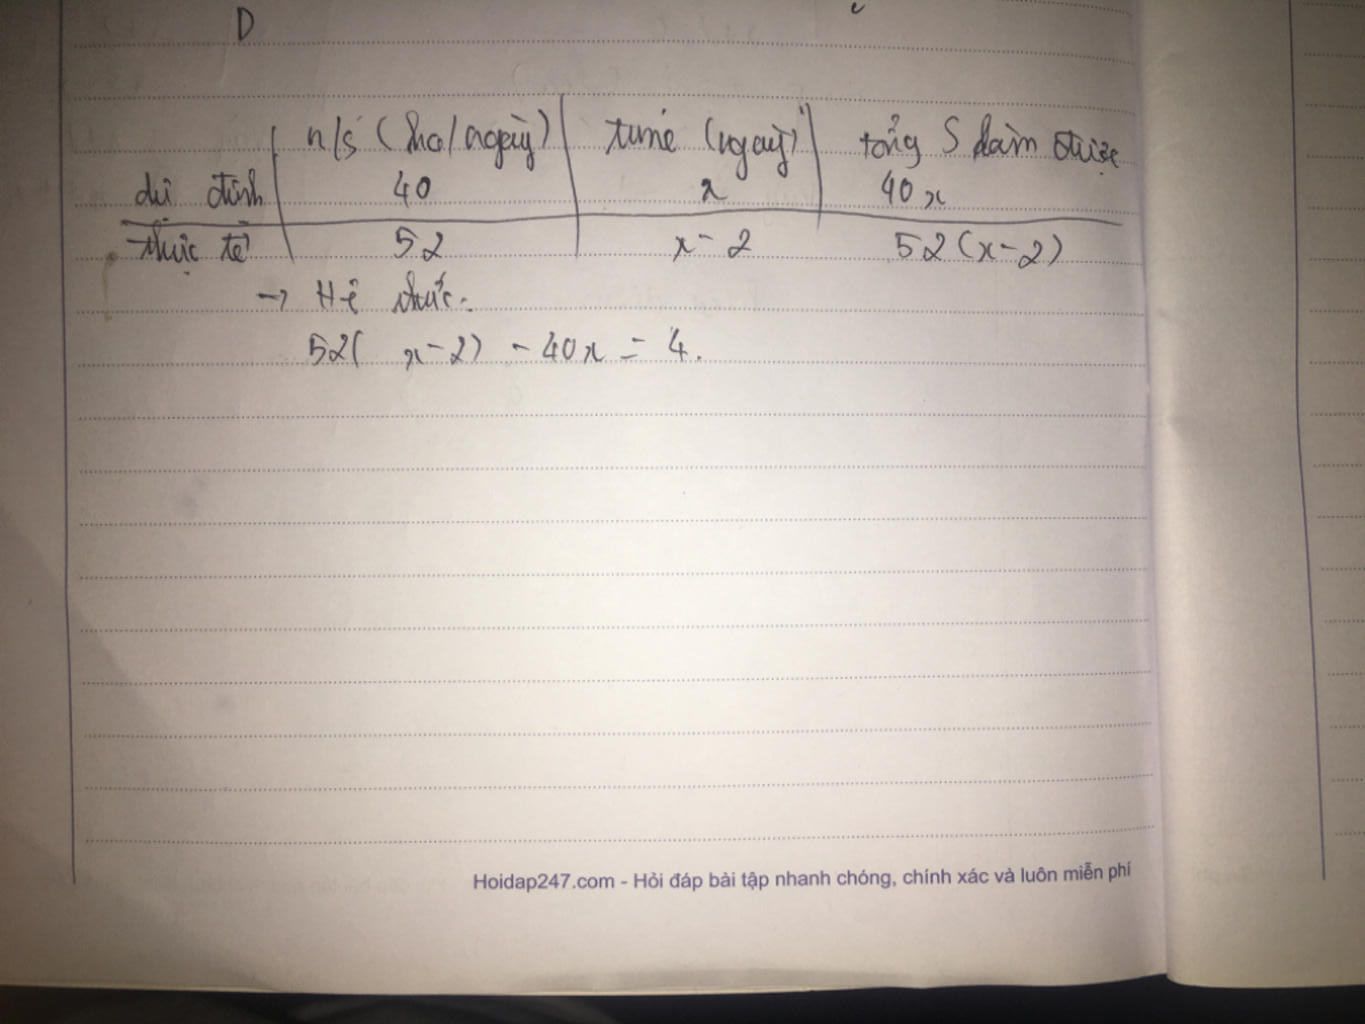 D
n/s (ha/ngày) time (ngày) tổng S làm được
dự định 40 x 40x
thực tế 52 x-2 52(x-2)
→ Hệ thức:
52( x-2) - 40x = 4.
Hoidap247.com - Hỏi đáp bài tập nhanh chóng, chính xác và luôn miễn phí